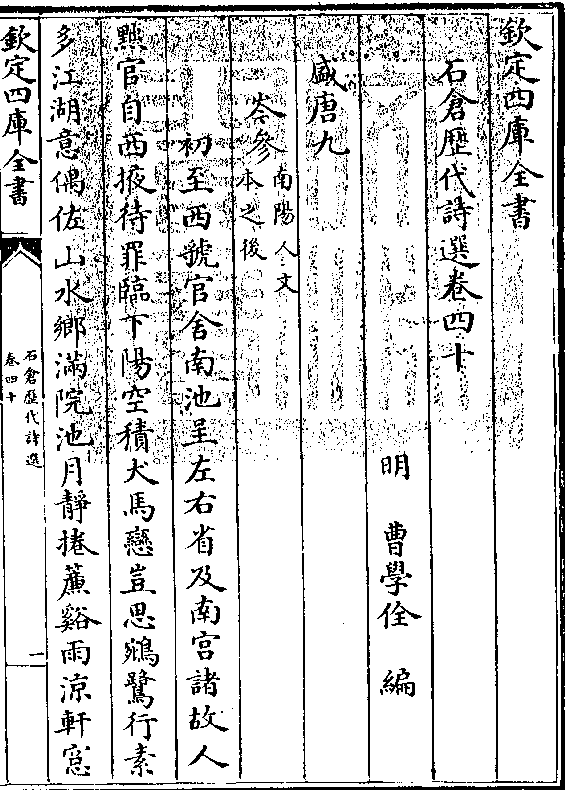 欽定四庫全書
石倉歷代詩選卷四十
明 曹學佺 編
盛唐九
岑參
南陽人文
本之後
初至西虢官舍南池呈左右省及南宮諸故人
黜官自西掖待罪臨下陽空積犬馬戀豈思鵷鷺行素
多江湖意偶佐山水鄉滿院池月靜捲簾谿雨涼軒窓
欽定四庫全書
石倉歷代詩選
卷四十
一